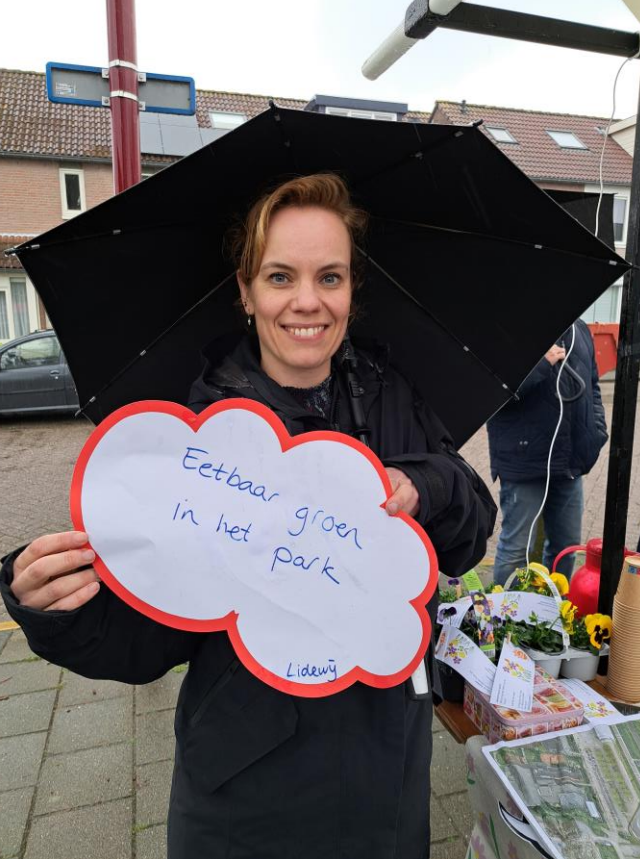 Eetbaar groen
in het
park
Lidewij